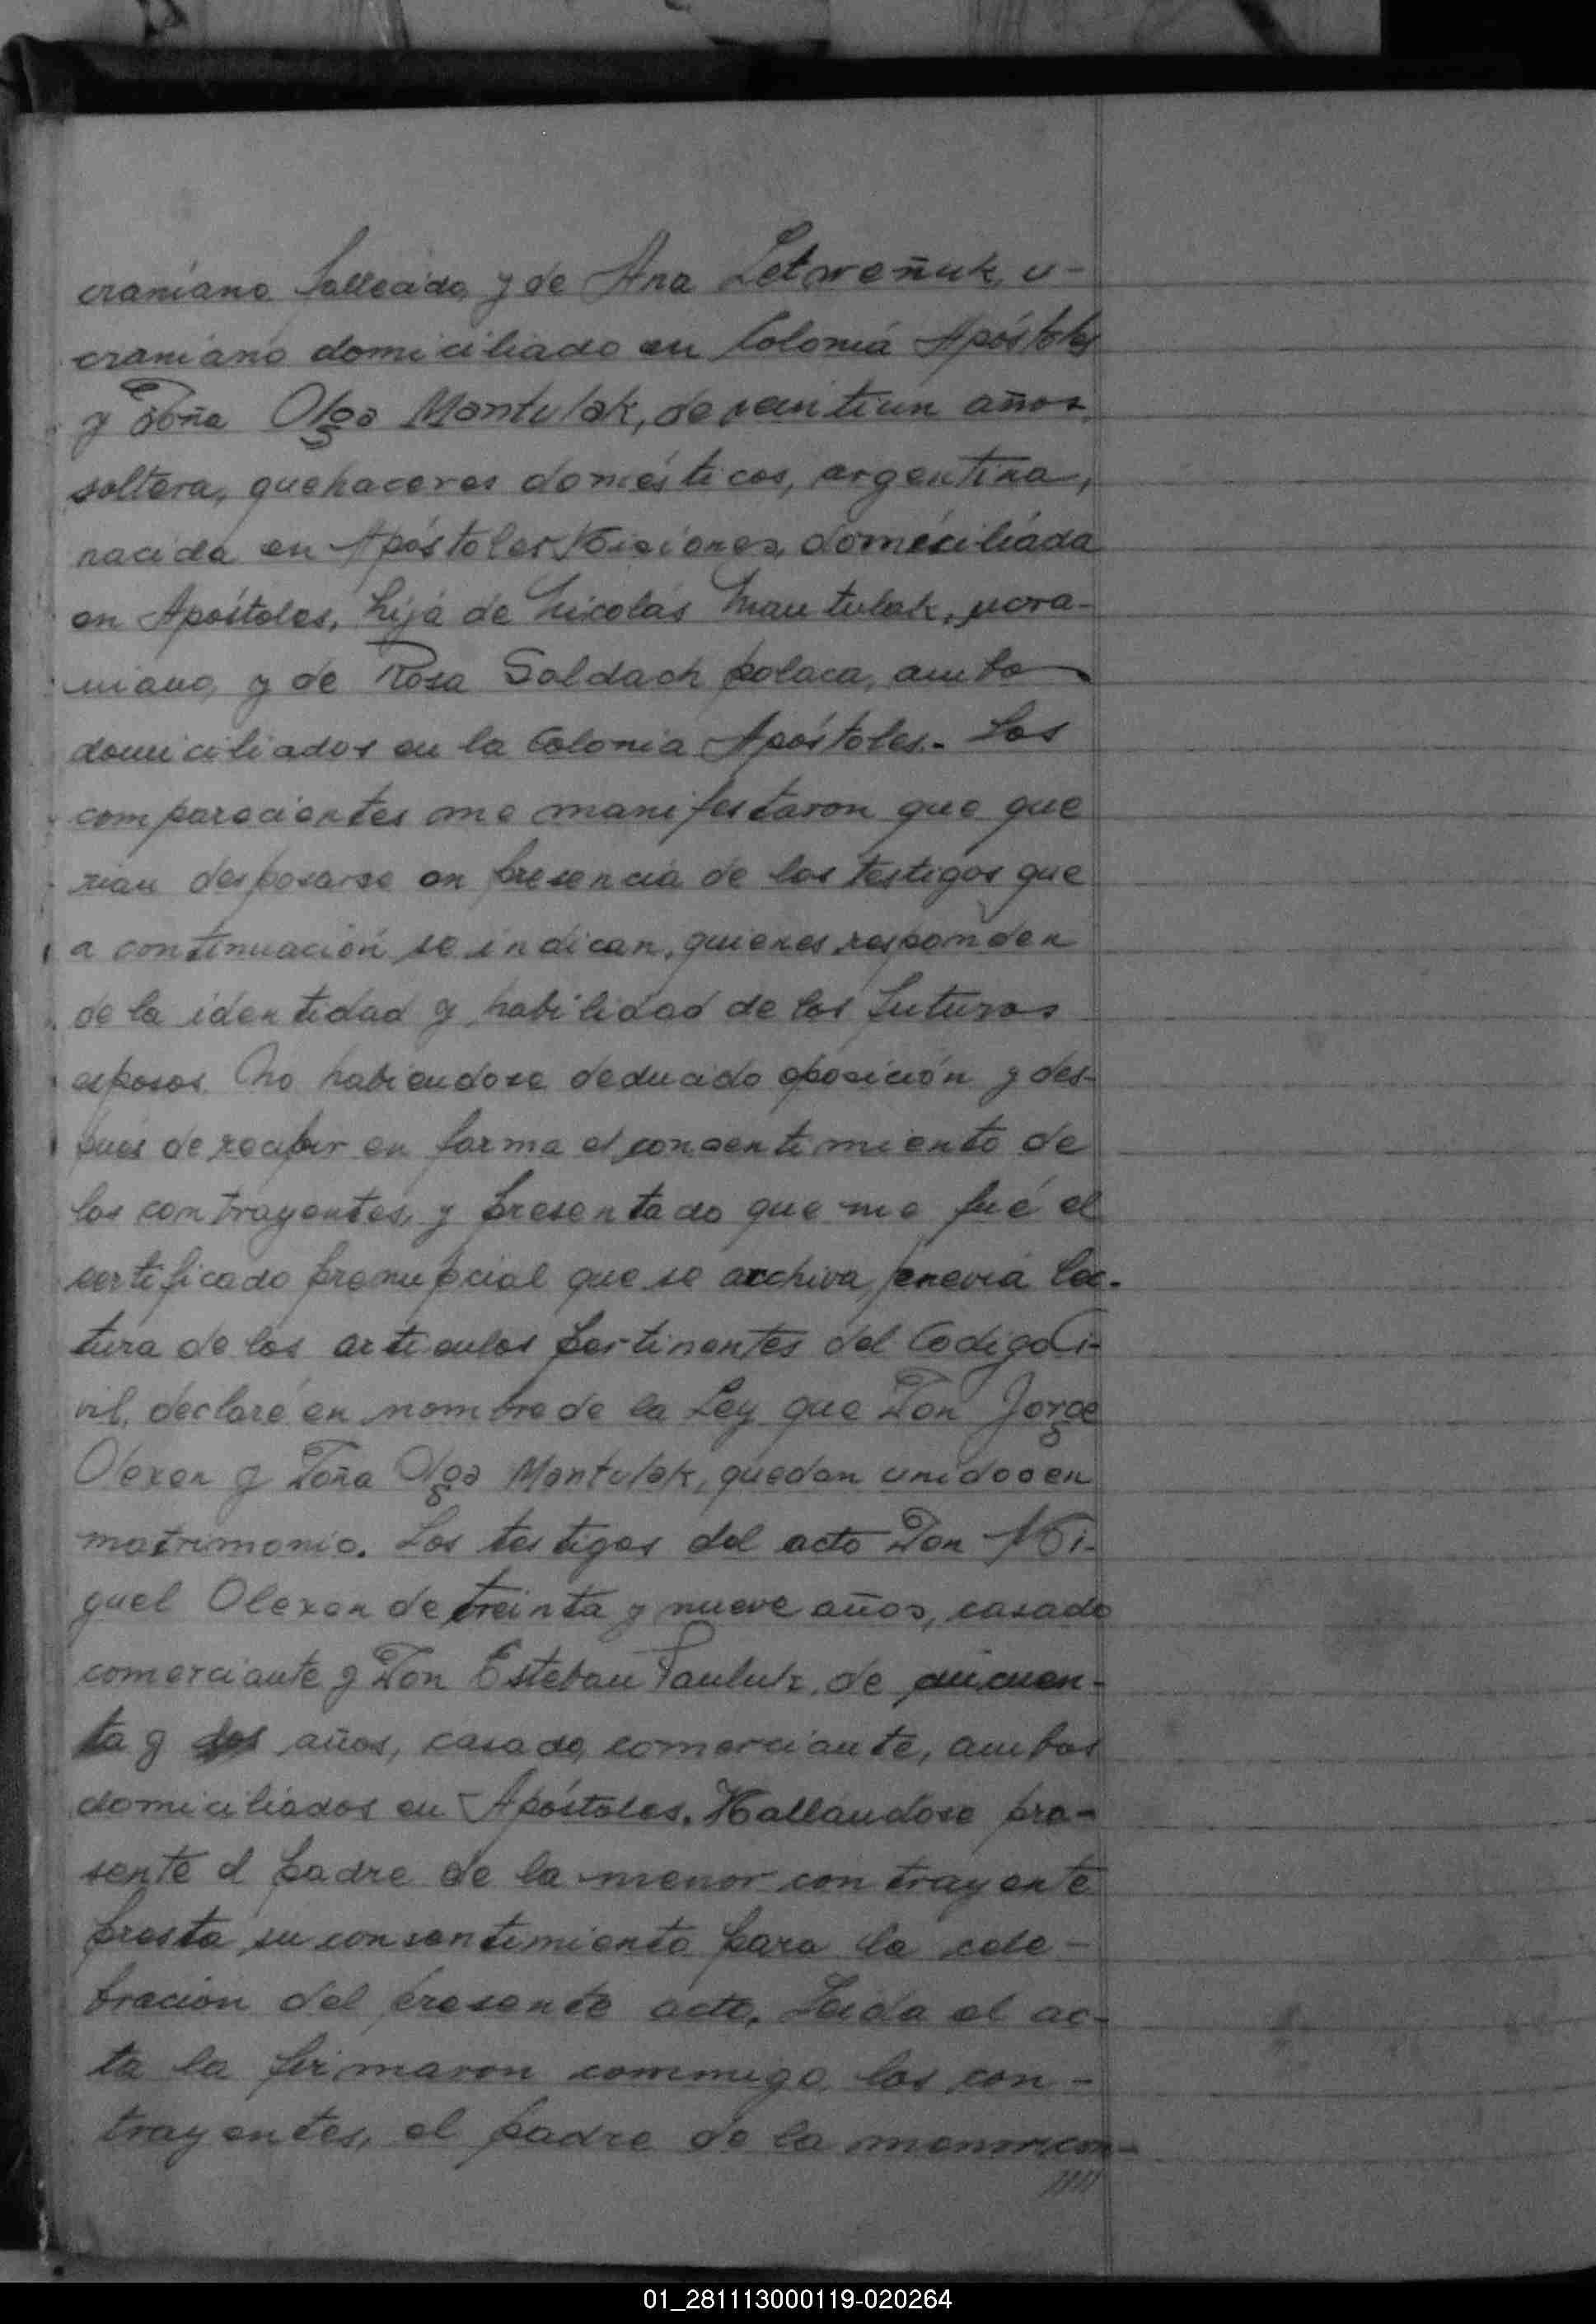 craniano fallecido, y de Ana Letweñuk, u-
craniano domiciliado en Colonia Apóstoles
y Doña Olga Mantulak, de veintiun años,
soltera, quehaceres domésticos, argentina,
nacida en Apóstoles Misiones, domiciliada
en Apóstoles, hija de Nicolás Mantulak, ucra-
niano, y de Rosa Soldach polaca, ambos
domiciliados en la Colonia Apóstoles.- Los
comparecientes me manifestaron que que
rian desposarse en presencia de los testigos que
a continuación se indican, quienes responden
de la identidad y habilidad de los futuros
esposos. No habiendose deducido oposición y des-
pués de recibir en forma el consentimiento de
los contrayentes, y presentado que me fué el
certificado prenupcial que se archiva, previa lec-
tura de los articulos pertinentes del Codigo Ci-
vil, declaré en nombre de la Ley que Don Jorge
Olexen y Doña Olga Mantulak, quedan unidos en
matrimonio. Los testigos del acto Don Mi-
guel Olexen de treinta y nueve años, casado
comerciante y Don Esteban Pauluk, de cincuen-
ta y dos años, casado, comerciante, ambos
domiciliados en Apóstoles. Hallandose pre-
sente el padre de la menor contrayente
presta su consentimiento para la cele-
bración del presente acto. Leida el ac-
ta la firmaron conmigo los con-
trayentes, el padre de la menor con-
////
01_281113000119-020264